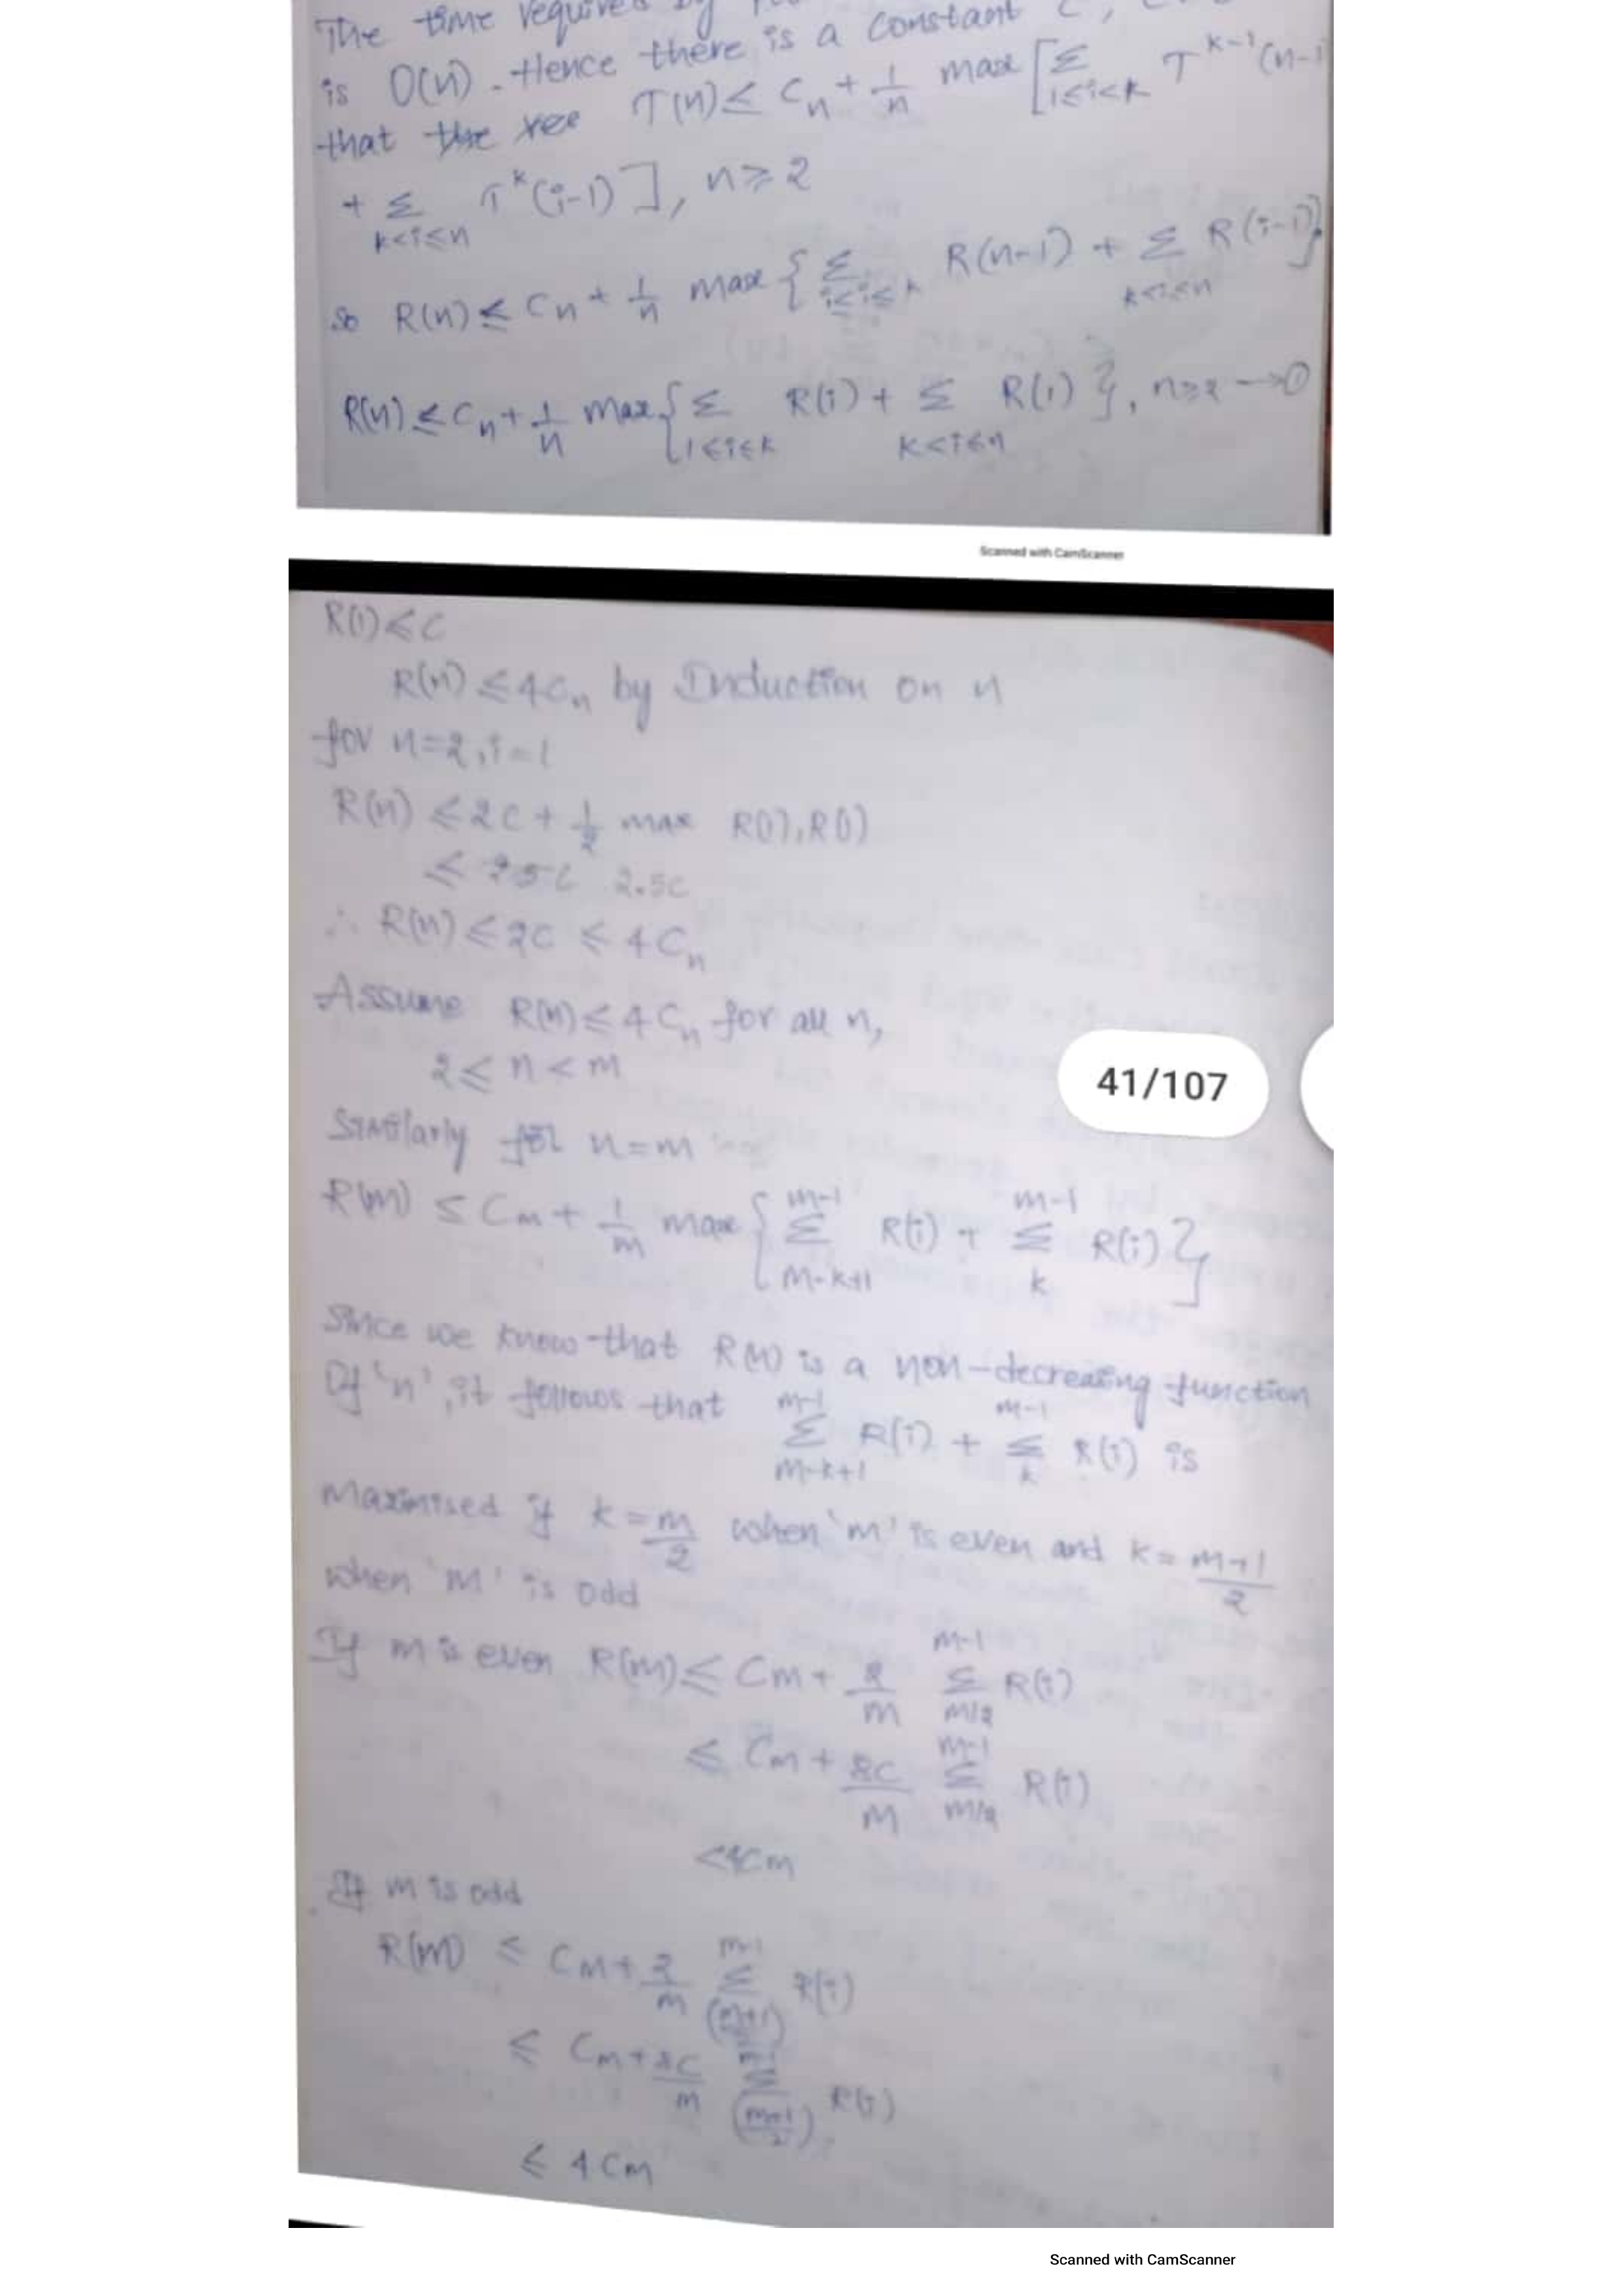 The time required by
is O(n). Hence there is a constant C,
that the rec T(n) ≤ Cn + 1/n max [Σ 1≤i<k T^k-1(n-1
+ Σ k<i≤n T^k(i-1)], n ≥ 2
so R(n) ≤ Cn + 1/n max {Σ R(n-1) + Σ k<i≤n R(i-1)}
R(n) ≤ Cn + 1/n max {Σ 1≤i≤k R(i) + Σ k<i≤n R(i)}, n≥2 → ①
Scanned with CamScanner
R(1) ≤ C
R(n) ≤ 4Cn by Induction on n
for n=2, i=1
R(n) ≤ 2C + 1/2 max R(1), R(1)
≤ 2.5C
∴ R(n) ≤ 2C ≤ 4Cn
Assume R(n) ≤ 4Cn for all n,
2 ≤ n < m
41/107
Similarly for n=m
R(m) ≤ Cm + 1/m max {Σ m-k+1 m-1 R(i) + Σ k m-1 R(i)}
Since we know that R(n) is a non-decreasing function
Of 'n', it follows that Σ m-k+1 m-1 R(i) + Σ k m-1 R(i) is
maximised if k = m/2 when 'm' is even and k = m+1/2
when 'm' is odd
If m is even R(m) ≤ Cm + 2/m Σ m/2 m-1 R(i)
≤ Cm + 8C/m Σ m/2 m-1 R(i)
<4Cm
If m is odd
R(m) ≤ Cm + 2/m Σ (m+1/2) m-1 R(i)
≤ Cm + 8C/m Σ (m+1/2) R(i)
≤ 4Cm
Scanned with CamScanner